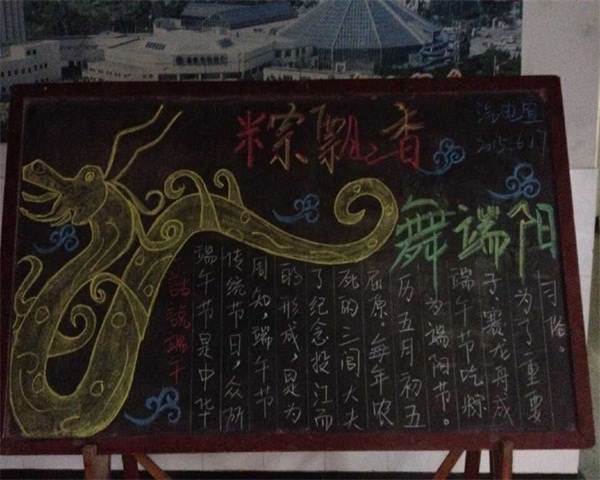 粽飘香
舞端阳
2015.6.17
話說端午
端午节是中华
传统节日,众所
周知,端午节
的形成,是为
了纪念投江而
死的三闾大夫
屈原。每年农
历五月初五
为端阳节。
端午节吃粽
子,赛龙舟成
为了重要
习俗。